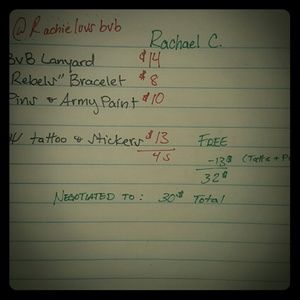 @Rachielovsbvb
Rachael C.
BvB Lanyard $14
"Rebels" Bracelet $8
Pins & Army Paint $10
W/ tattoo & stickers $13 FREE
45 -13$ (Tatts + P
32$
NEGOTIATED TO: 30$ Total